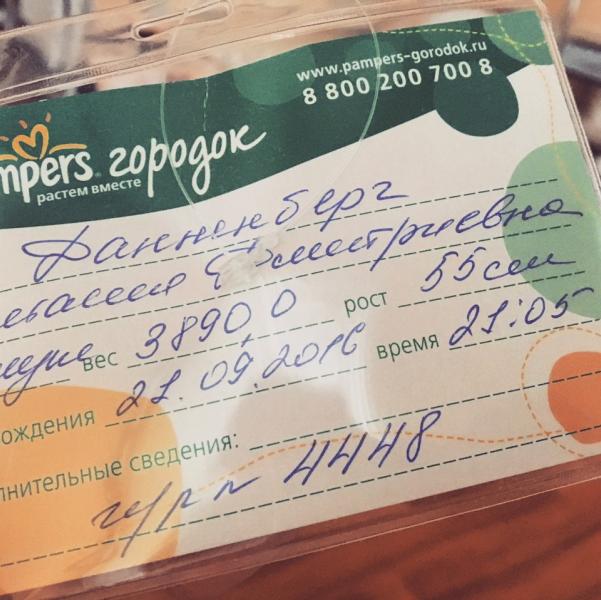 www.pampers-gorodok.ru
8 800 200 700 8
mpers городок
растем вместе
Данненберг
Дмитриевна
вес 3890,0 рост 55 см
ождения 21.09.2016 время 21:05
лнительные сведения:
4448